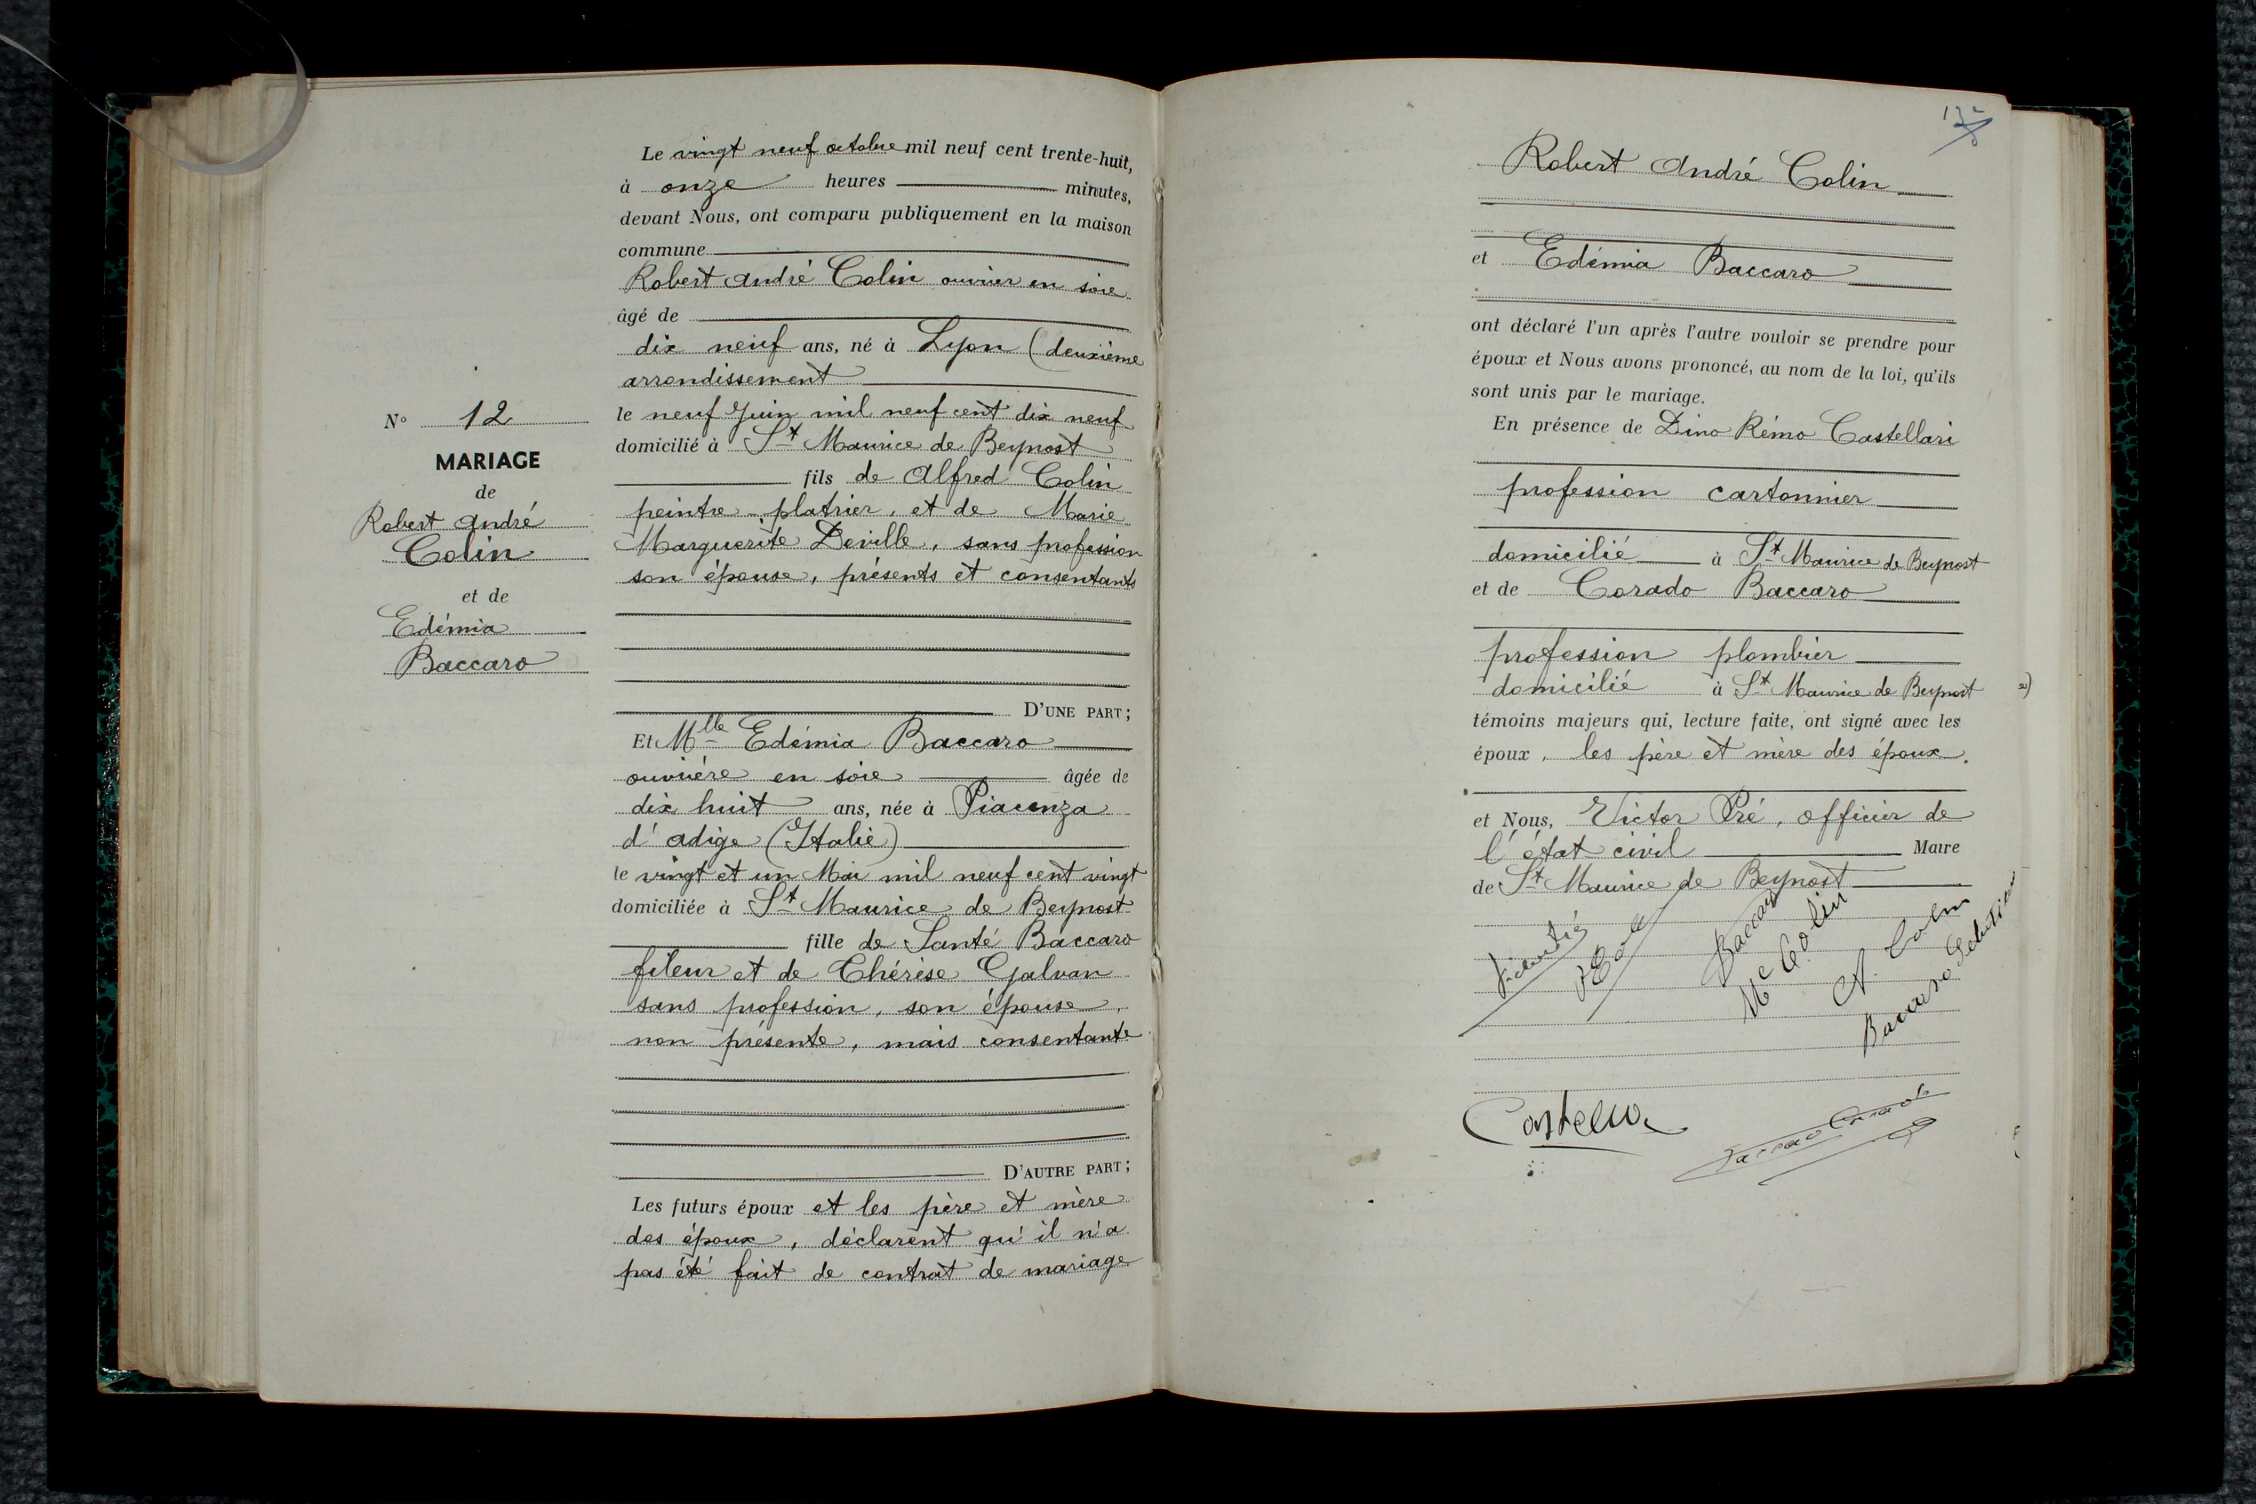 N° 12
MARIAGE
de
Robert André
Colin
et de
Edémia
Baccaro
Le vingt neuf octobre mil neuf cent trente-huit,
à onze heures minutes,
devant Nous, ont comparu publiquement en la maison
commune
Robert André Colin ouvrier en soie
âgé de
dix neuf ans, né à Lyon (deuxième
arrondissement
le neuf Juin mil neuf cent dix neuf
domicilié à St Maurice de Beynost
fils de Alfred Colin
peintre platrier, et de Marie
Marguerite Deville, sans profession
son épouse, présents et consentants
D'UNE PART;
Et Mlle Edémia Baccaro
ouvrière en soie âgée de
dix huit ans, née à Piacenza
d'adige (Italie)
le vingt et un Mai mil neuf cent vingt
domiciliée à St Maurice de Beynost
fille de Santé Baccaro
fileur et de Thérèse Galvan
sans profession, son épouse,
non présente, mais consentante
D'AUTRE PART;
Les futurs époux et les père et mère
des époux, déclarent qu'il n'a
pas été fait de contrat de mariage
Robert André Colin
et Edémia Baccaro
ont déclaré l'un après l'autre vouloir se prendre pour
époux et Nous avons prononcé, au nom de la loi, qu'ils
sont unis par le mariage.
En présence de Dino Rémo Castellari
profession cartonnier
domicilié à St Maurice de Beynost
et de Corado Baccaro
profession plombier
domicilié à St Maurice de Beynost
témoins majeurs qui, lecture faite, ont signé avec les
époux, les père et mère des époux.
et Nous, Victor Pré, officier de
l'état civil Maire
de St Maurice de Beynost
Baccaro
Me Colin
A. Colin
Baccaro